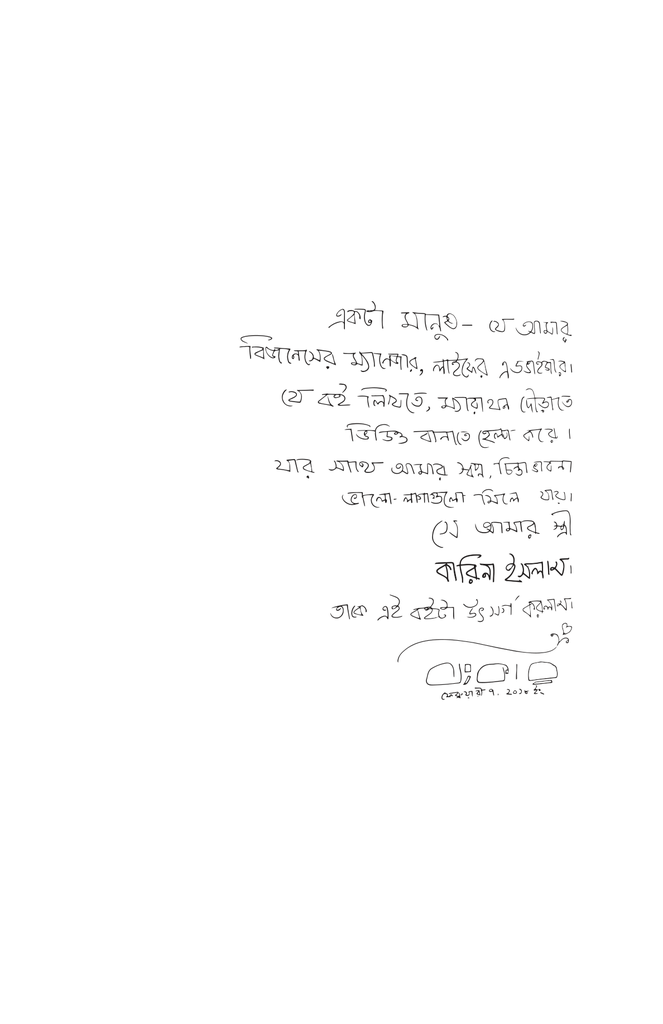 একটা মানুষ - যে আমার
বিজনেসের ম্যানেজার, লাইফের এডভাইজার।
যে বই লিখতে, ম্যারাথন দৌড়াতে
ভিডিও বানাতে হেল্প করে।
যার সাথে আমার স্বপ্ন, চিন্তাভাবনা
ভালো-লাগাগুলো মিলে যায়।
সে আমার স্ত্রী
কারিনা ইসলাম।
তাকে এই বইটা উৎসর্গ করলাম।
ফেব্রুয়ারী ৭, ২০১৮